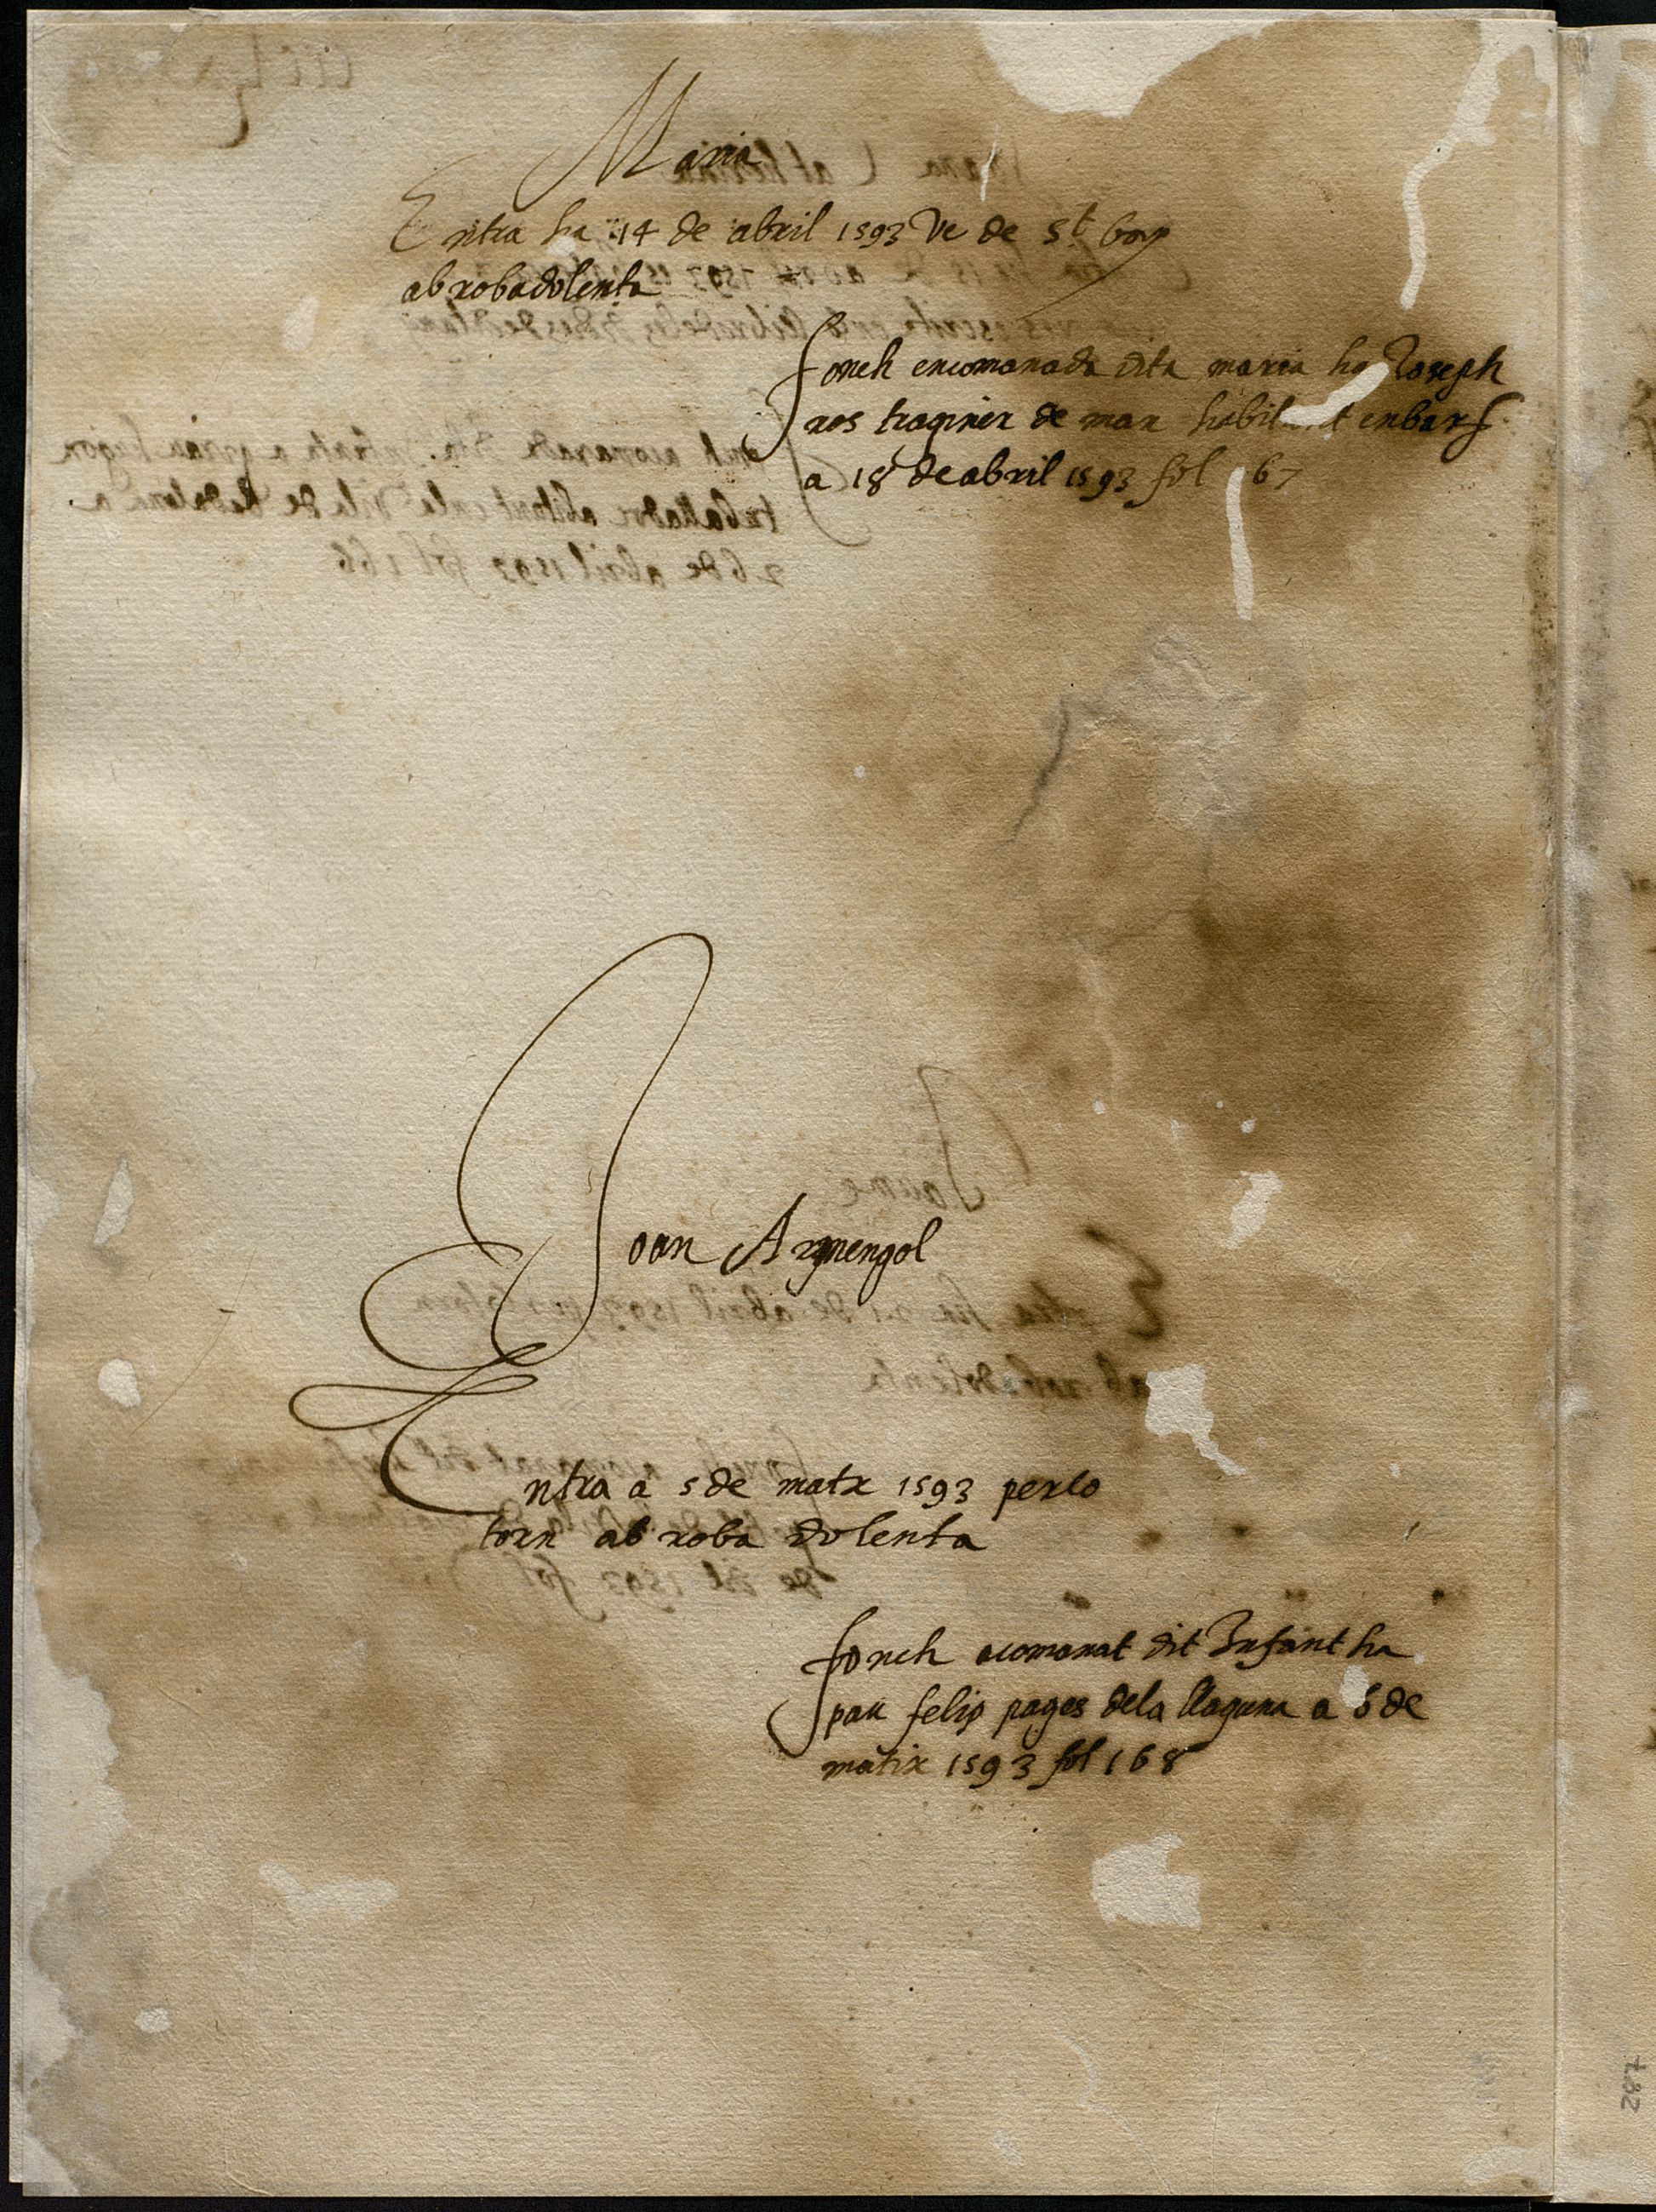 Maria
Entra ha 14 de abril 1593 ve de St boy
ab roba dolenta
fonch encomanada dita maria ha Joseph
ros traginer de mar habit t en bars.
a 18 de abril 1593 fol 67
Joan Armengol
Entra a 5 de matx 1593 per lo
torn ab roba dolenta
fonch acomanat dit Infant ha
pau felip pages de la llaguna a 5 de
matix 1593 fol 168